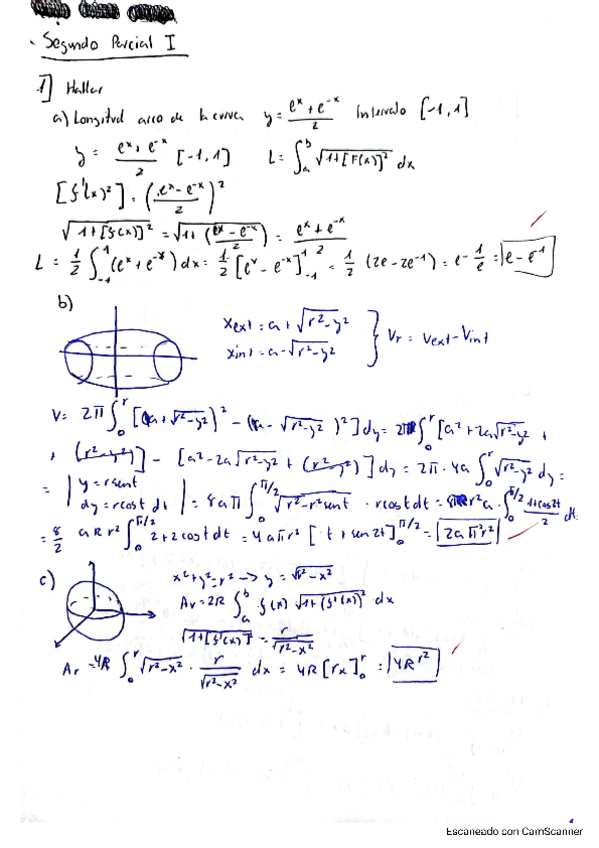 . Segundo Parcial I
1] Hallar
a) Longitud arco de la curva y = (e^x + e^-x)/2 Intervalo [-1,1]
y = (e^x + e^-x)/2 [-1,1] L = ∫_a^b √(1+[F'(x)]²) dx
[f'(x)²] = ((e^x - e^-x)/2)²
√(1+[f(x)]²) = √(1+((e^x - e^-x)/2)²) = (e^x + e^-x)/2
L = 1/2 ∫_-1^1 (e^x + e^-x) dx = 1/2 [e^x - e^-x]_-1^1 = 1/2 (2e - 2e^-1) = e - 1/e = e - e^-1
b)
x_ext = a + √(r²-y²)
x_int = a - √(r²-y²) } V_r = V_ext - V_int
V = 2π ∫_0^r [(a + √(r²-y²))² - (a - √(r²-y²))²] dy = 2π ∫_0^r [a² + 2a√(r²-y²) +
+ (r²-y²)] - [a² - 2a√(r²-y²) + (r²-y²)] dy = 2π · 4a ∫_0^r √(r²-y²) dy =
= | y = r sent
dy = r cost dt | = 8aπ ∫_0^π/2 √(r²-r² sent) · r cost dt = 8πr²a · ∫_0^π/2 (1+cos2t)/2 dt
= 8/2 aπr² ∫_0^π/2 2+2cost dt = 4aπr² [t + sen2t]_0^π/2 = 2aπ²r²
c)
x²+y² = r² -> y = √(r²-x²)
Ar = 2π ∫_a^b f(x) √(1+(f'(x))²) dx
√(1+[f'(x)]²) = r/√(r²-x²)
Ar = 4π ∫_0^r √(r²-x²) · r/√(r²-x²) dx = 4π [rx]_0^r = 4πr²
Escaneado con CamScanner